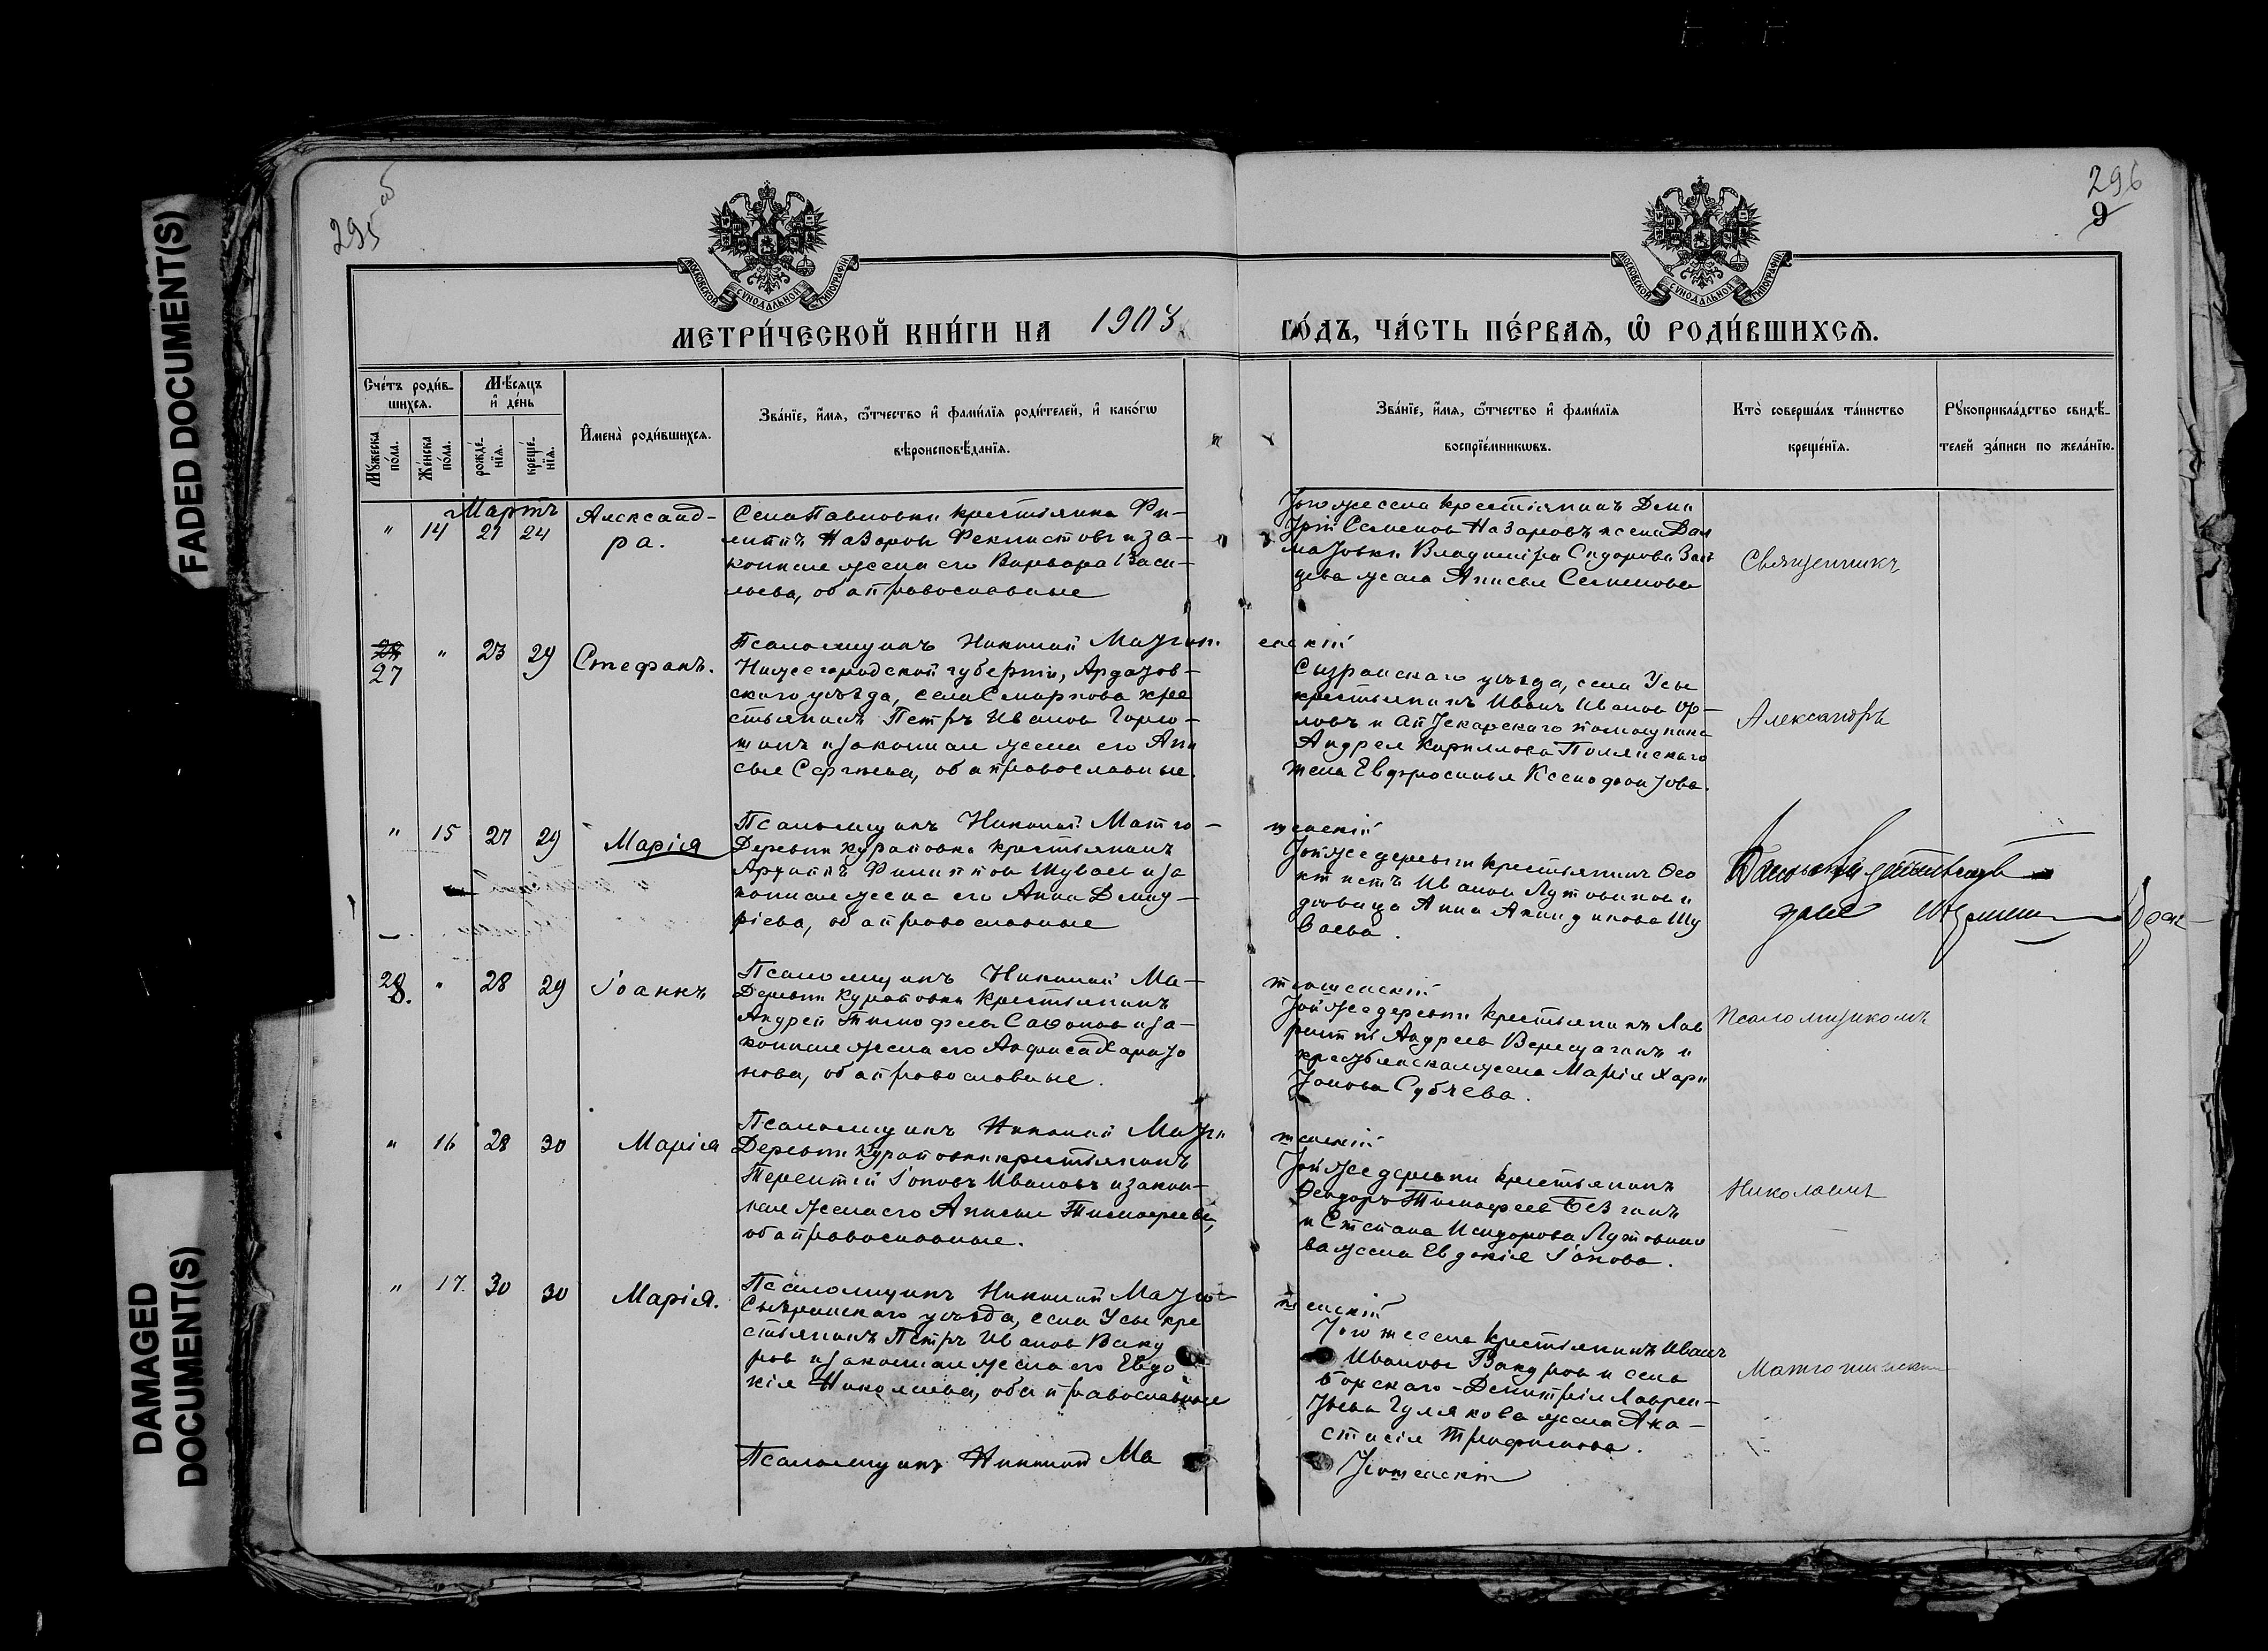 FADED DOCUMENT(S)
DAMAGED
DOCUMENT(S)
295 об
296
9
МОСКОВСКОЙ СУНОДАЛЬНОЙ ТИПОГРАФІИ
МОСКОВСКОЙ СУНОДАЛЬНОЙ ТИПОГРАФІИ
МЕТРИ́ЧЕСКОЙ КНИ́ГИ НА 1903
ГО́ДЪ, ЧА́СТЬ ПЕ́РВАѦ, Ѡ҆ РОДИ́ВШИХСѦ.
Сче́тъ роди́в-
шихсѧ.
Мꙋ́жеска
по́ла.
Же́нска
по́ла.
Мѣ́сѧцъ
и҆ де́нь
рожде́-
нїѧ.
креще́-
нїѧ.
И҆мена̀ роди́вшихсѧ.
Зва́нїе, и҆́мѧ, ѻ҆́тчество и҆ фами́лїѧ роди́телей, и҆ како́гѡ
вѣроисповѣ́данїѧ.
Зва́нїе, и҆́мѧ, ѻ҆́тчество и҆ фами́лїѧ
воспрїе́мникѡвъ.
Кто̀ соверша́лъ та́инство
креще́нїѧ.
Рꙋкоприкла́дство свидѣ́-
телей за́писи по жела́нїю.
Мартъ
" 14 21 24
Александ-
ра.
Села Павловки крестьянинъ Фи-
липпъ Назаровъ Феклистовъ и за-
конная жена его Варвара Васи-
льева, оба православные
Того же села крестьянинъ Дми
трій Семеновъ Назаровъ и села
Владиміра Сидорова
жена Анисья Семенова
Священникъ
Псаломщикъ Николай Матюшенскій
27 " 23 29
Стефанъ.
Нижегородской губерніи, Ардатов-
скаго уѣзда, села Смирнова кре
стьянинъ Петръ Ивановъ
и законная жена его Ани
сья Сергѣева, оба православные.
Сызранскаго уѣзда, села Усы
крестьянинъ Иванъ Ивановъ Ор-
ловъ и аптекарскаго помощника
Андрея Кириллова Полянскаго
жена Евфросинья Ксенофонтова.
Александръ
Псаломщикъ Николай Матюшенскій
" 15 27 29
Марія
Деревни Куратовки крестьянинъ
Архипъ Филипповъ Шуваевъ и за
конная жена его Анна Дмит-
ріева, оба православные
Той же деревни крестьянинъ Ѳео
ктистъ Ивановъ Лутовиновъ и
вдовица Анна Акиндинова Шу
ваева.
Псаломщикъ Николай Матюшенскій
28. " 28 29
Іоаннъ
Деревни Куратовки крестьянинъ
Андрей Тимофеевъ Сафоновъ и за-
конная жена его Анфиса Харито
нова, оба православные.
Той же деревни крестьянинъ Лав
рентій Андреевъ Верещагинъ и
крестьянская жена Марія Хари
тонова Субчева.
псаломщикомъ
Псаломщикъ Николай Матюшенскій
" 16 28 30
Марія
Деревни Куратовки крестьянинъ
Терентій Іоновъ Ивановъ и закон-
ная жена его Анисья Тимофеева,
оба православные.
Той же деревни крестьянинъ
Ѳеодоръ Тимофеевъ
и Степана Исидорова Лутовино
ва жена Евдокія Іонова.
Николаемъ
Псаломщикъ Николай Матюшенскій
" 17. 30 30
Марія.
Сызранскаго уѣзда, села Усы кре
стьянинъ Петръ Ивановъ Ваку
ровъ и законная жена его Евдо
кія Николаева, оба православные
Того же села крестьянинъ Иванъ
Ивановъ Вакуровъ и села
Борскаго Димитрія Лаврен-
тьева Гулякова жена Ана-
стасія Трифонова.
Матюшенскимъ
Псаломщикъ Николай Ма
тюшенскій